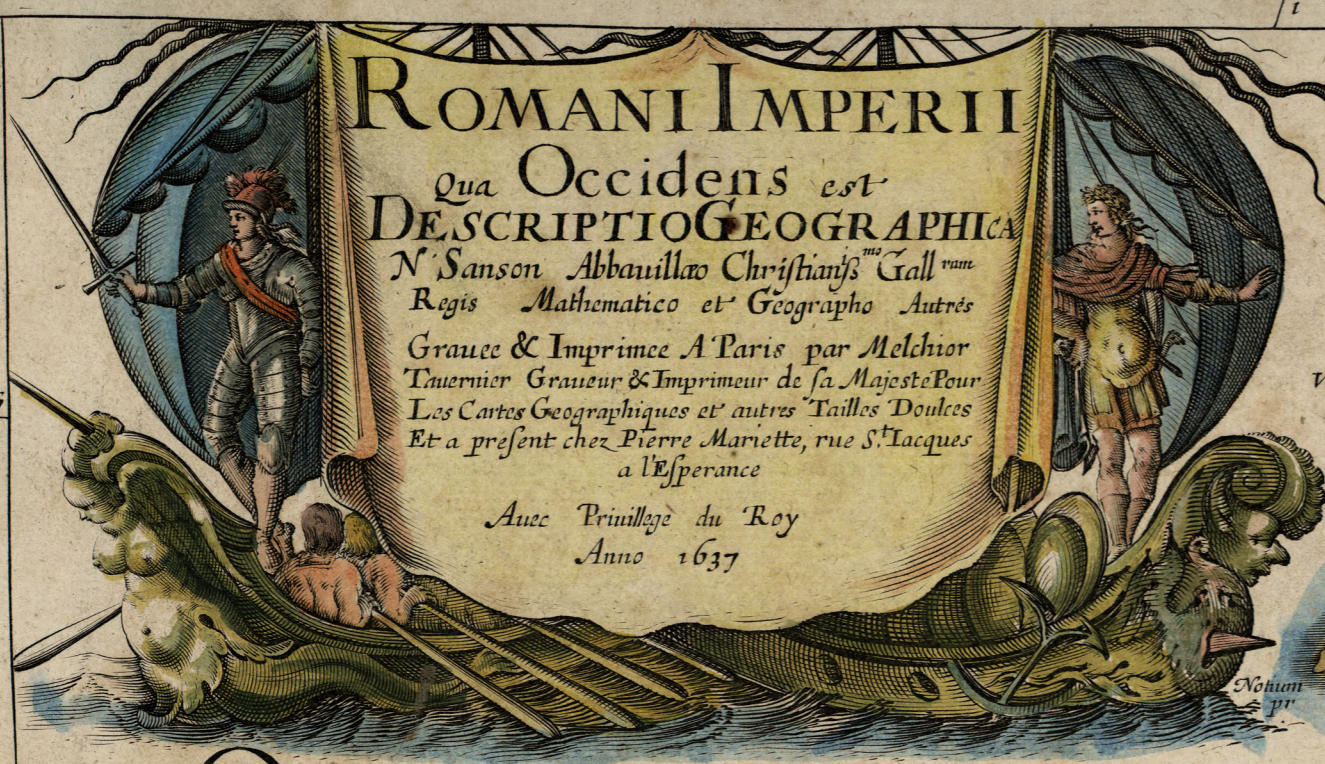 ROMANI IMPERII
Qua Occidens est
DESCRIPTIO GEOGRAPHICA
N Sanson Abbavillæo Christianiss.mo Gall.rum
Regis Mathematico et Geographo Autrés
Grauee & Imprimee A Paris par Melchior
Tauernier Graueur & Imprimeur de sa Majeste Pour
Les Cartes Geographiques et autres Tailles Doulces
Et a present chez Pierre Mariette, rue S.t Iacques
a l'Esperance
Auec Priuillege du Roy
Anno 1637
Notium
pr